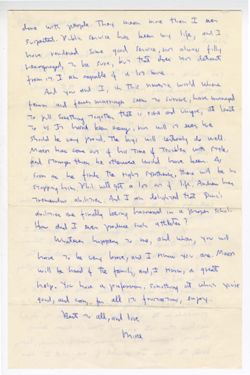 done with people. They mean more than I ever
suspected. Public service has been my life, and I
have rendered some good service, not always fully
to be sure, but that does not detract
from it. I am capable of a lot more.
And you and I, in this world where
and seem to have managed
to pull something together that is and unique, at least
to us. It hasn't been easy, nor will it ever be
should be very proud. The boys will certainly do well.
Mason has come out of his time of troubles with style,
and stronger than he otherwise would have been. As
soon as he finds the right there will be no
stopping him. Phil will get a lot out of life. Andrew has
tremendous abilities. And I am delighted that
abilities are finally being harnessed in a proper
How did I ever produce such athletes?
Whatever happens to me, and when, you will
have to be very brave, and I know you are. Mason
will be head of the family, and, I know, a great
help. You have a profession, something at which you're
good, and can, for all it enjoy.
Best to all, and love
Mike